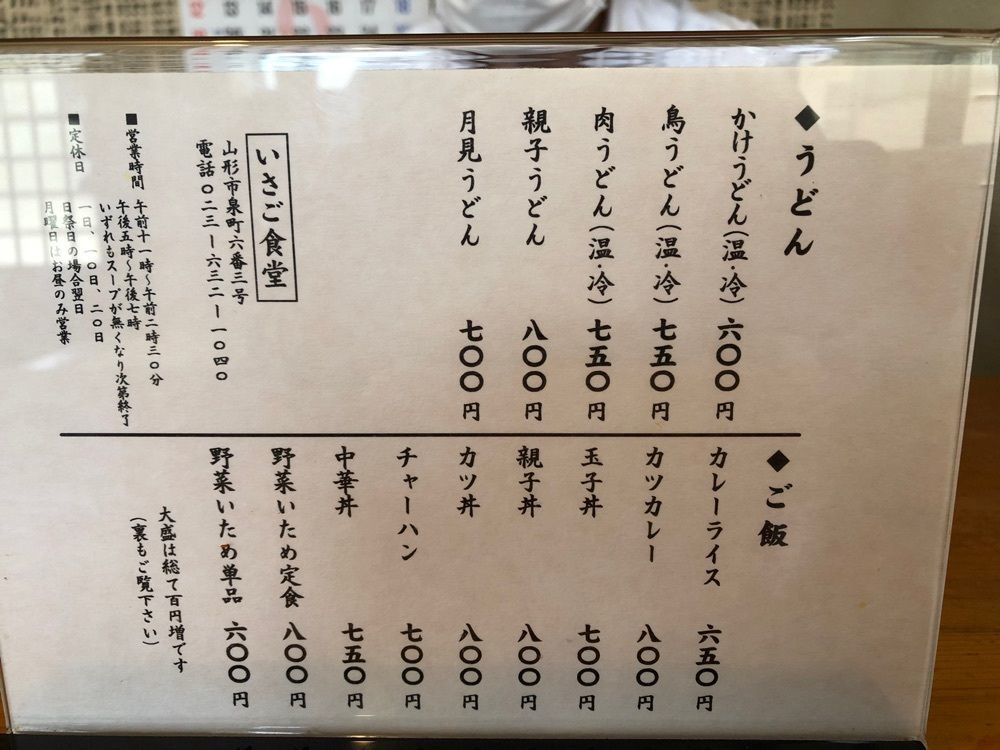 ◆うどん
かけうどん（温・冷） 六〇〇円
鳥うどん（温・冷） 七五〇円
肉うどん（温・冷） 七五〇円
親子うどん 八〇〇円
月見うどん 七〇〇円
いさご食堂
山形市泉町六番三号
電話〇二三ー六三二ー一〇四〇
■営業時間 午前十一時～午前二時三〇分
午後五時～午後七時
いずれもスープが無くなり次第終了
■定休日 一日、一〇日、二〇日
日祭日の場合翌日
月曜日はお昼のみ営業
◆ご飯
カレーライス 六五〇円
カツカレー 八〇〇円
玉子丼 七〇〇円
親子丼 八〇〇円
カツ丼 八〇〇円
チャーハン 七〇〇円
中華丼 七五〇円
野菜いため定食 八〇〇円
野菜いため単品 六〇〇円
大盛は総て百円増です
（裏もご覧下さい）
12 13 14 15 16 17 18